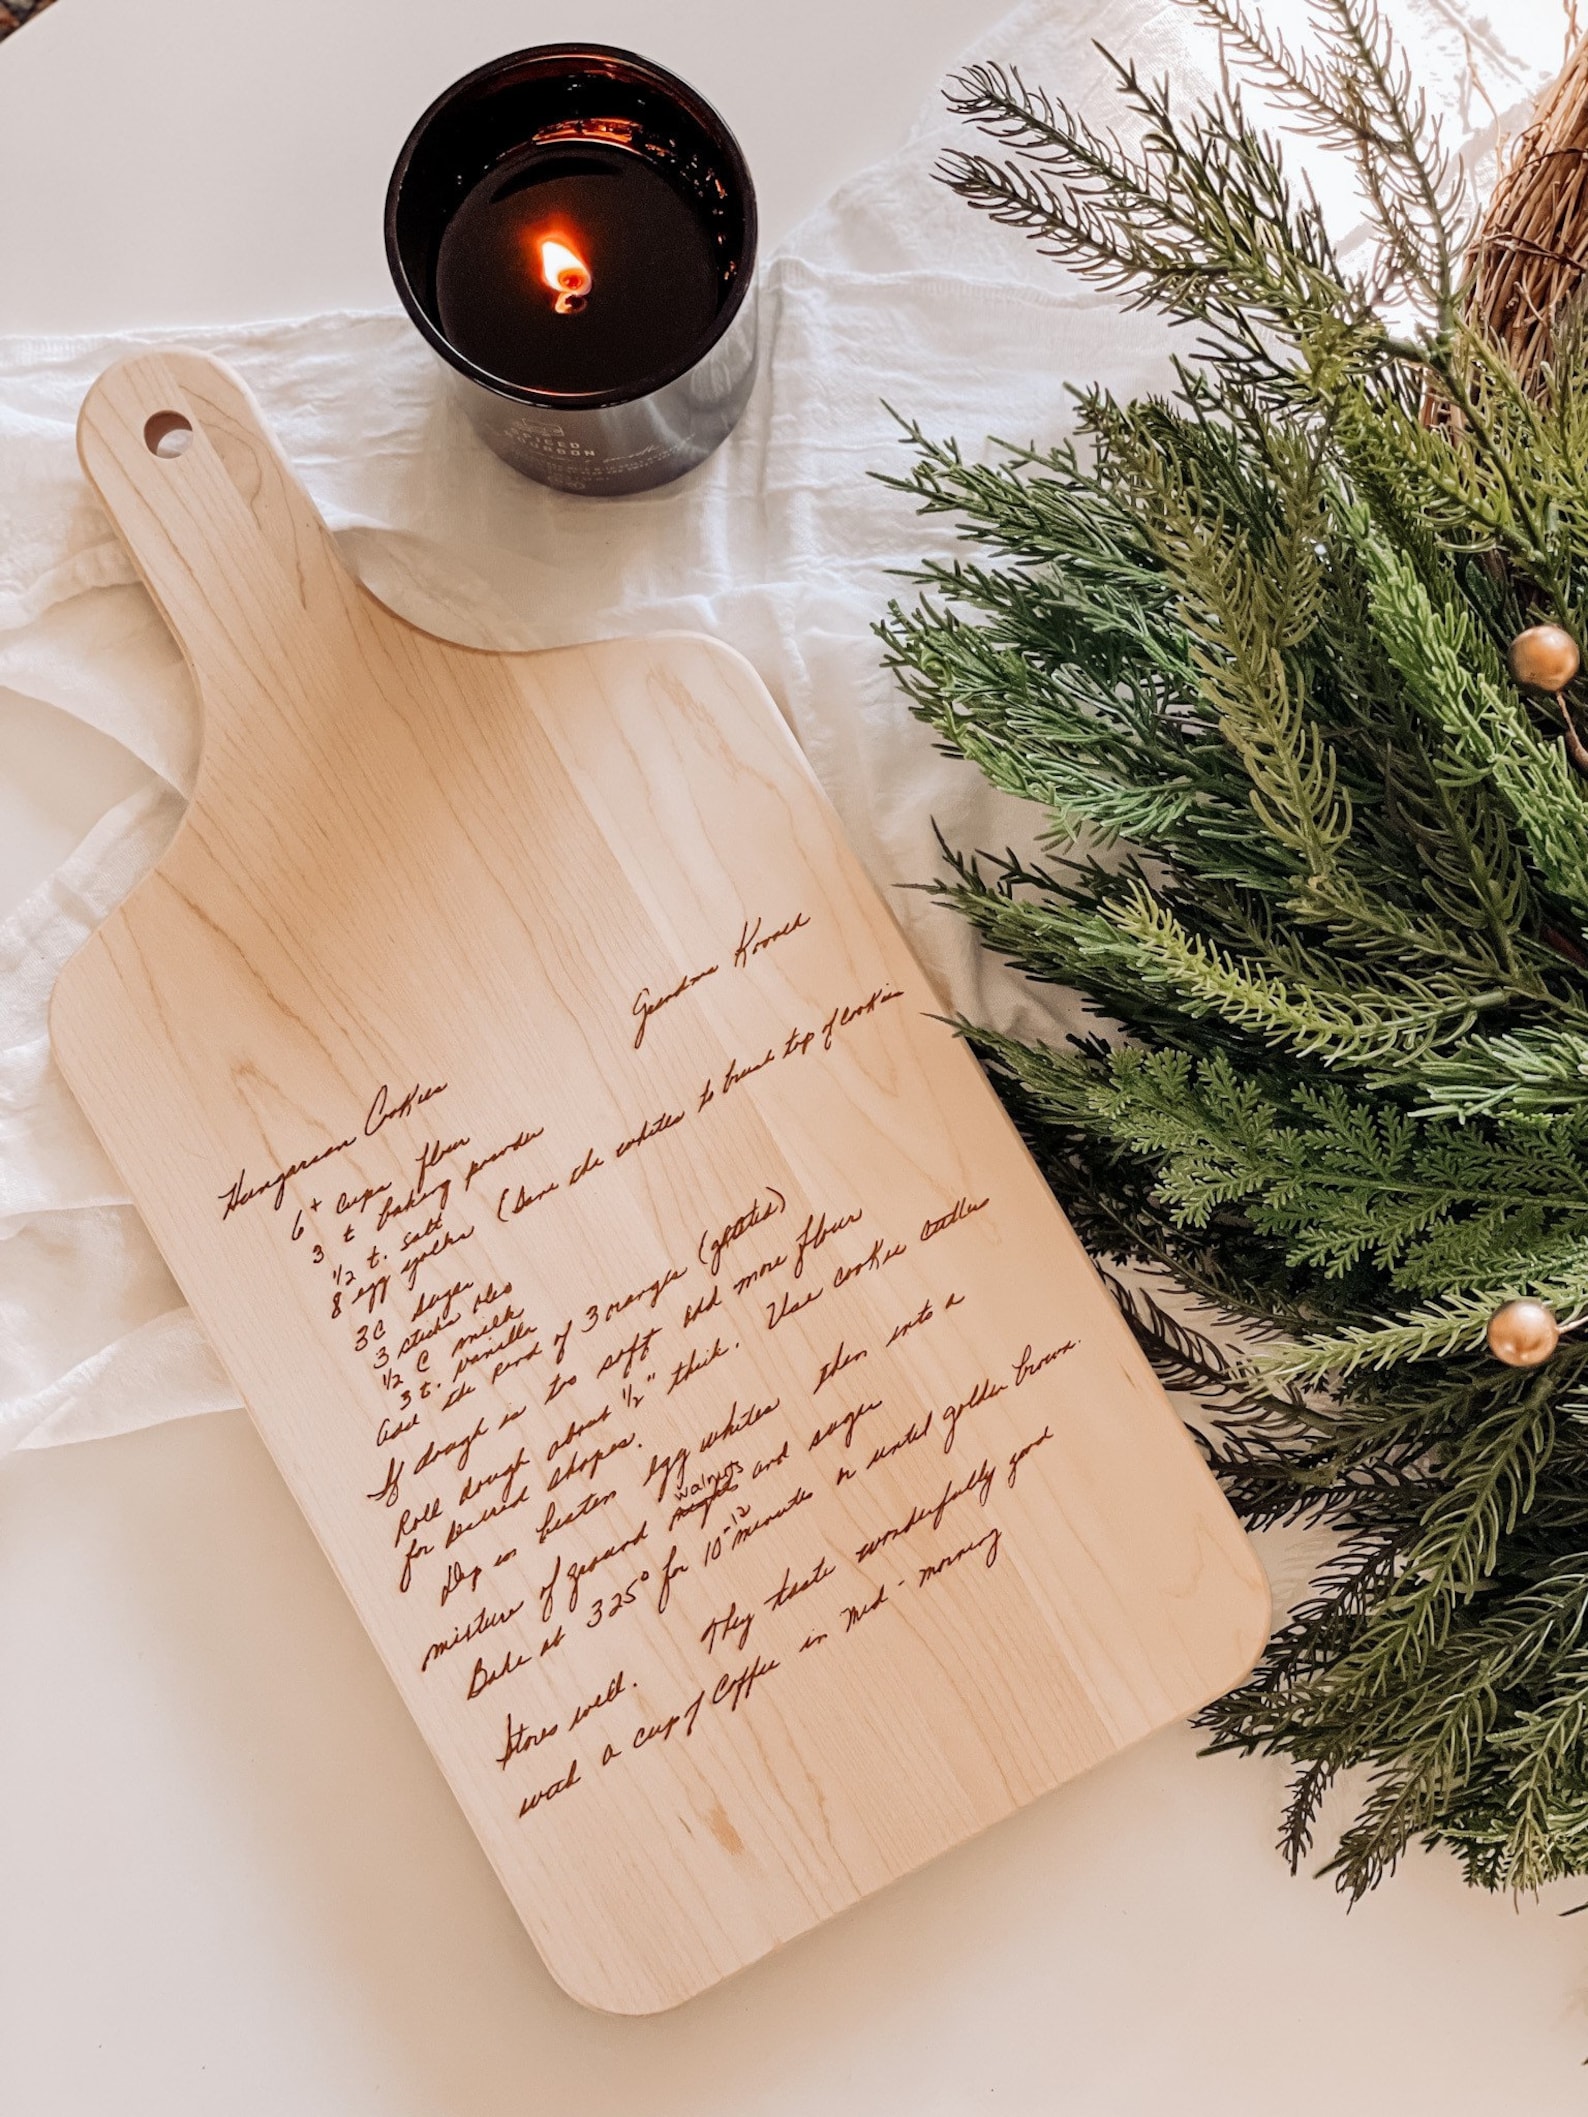 SPICED
BOURBON
Grandma
Hungarian Cookies
6+ cups flour
3 t baking powder
1/2 t. salt
8 egg yolks (Save the whites to brush top of cookies
3C sugar
3 sticks oleo
1/2 C milk
3 t. vanilla
Add the rind of 3 oranges (grated)
If dough is too soft add more flour
Roll dough about 1/2" thick. Use cookie cutters
for desired shapes.
Dip in beaten egg whites then into a
walnuts
mixture of ground and sugar
Bake at 325° for 10-12 minutes or until golden brown.
Stores well. They taste wonderfully good
with a cup of Coffee in Mid-morning